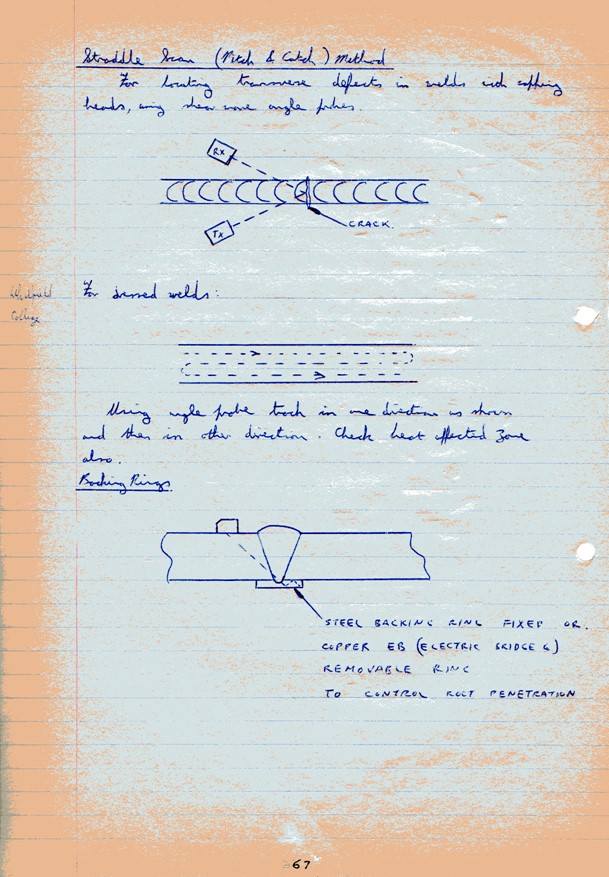 Straddle Scan (Pitch & Catch) Method
For locating transverse defects in welds with capping
beads, using shear wave angle probes.
RX
TX
CRACK.
For dressed welds:
College
Using angle probe track in one direction as shown
and then in other direction. Check heat affected zone
also.
Backing Rings
STEEL BACKING RING FIXED OR.
COPPER EB (ELECTRIC BRIDGE
REMOVABLE RING
TO CONTROL ROOT PENETRATION
67